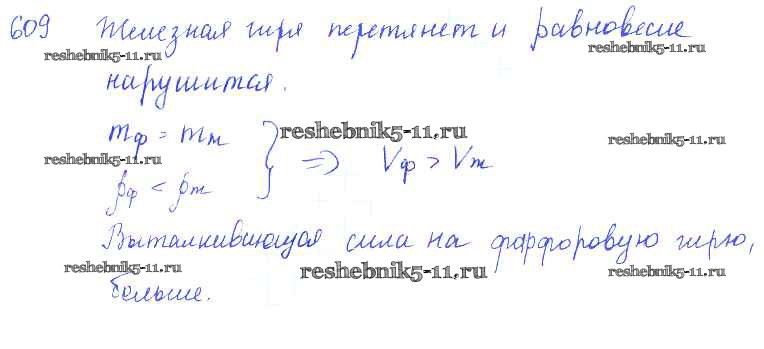 609 Железная гиря перетянет и равновесие
reshebnik5-11.ru reshebnik5-11.ru
нарушится.
mф = mж reshebnik5-11.ru reshebnik5-11.ru
reshebnik5-11.ru } => Vф > Vж
ρф < ρж
Выталкивающая сила на фарфоровую гирю,
reshebnik5-11.ru reshebnik5-11.ru reshebnik5-11.ru
больше.